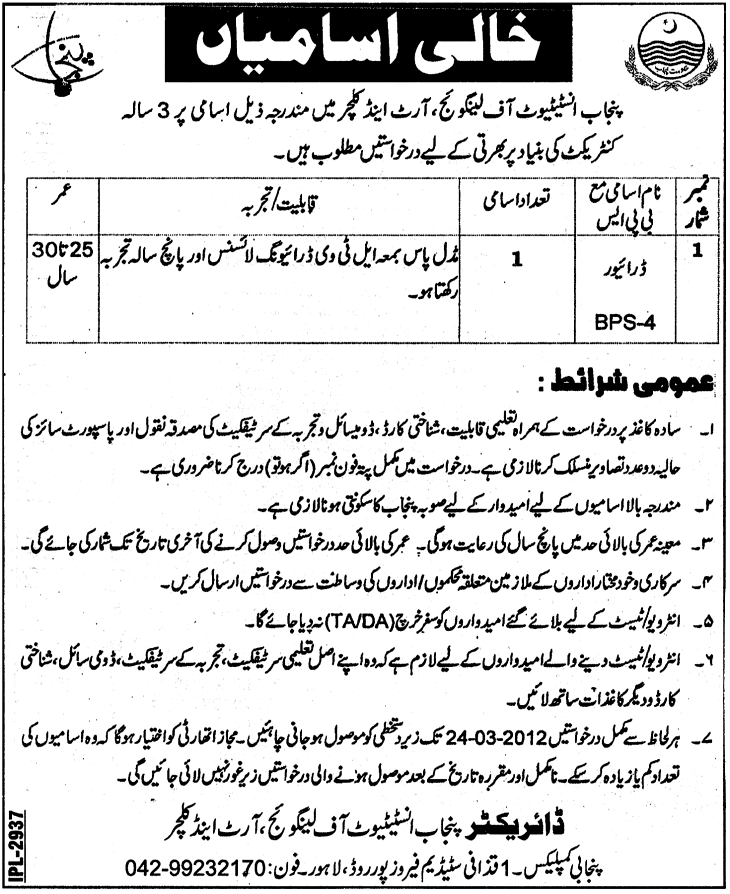 خالی اسامیاں
پنجاب انسٹیٹیوٹ آف لینگوئج، آرٹ اینڈ کلچر میں مندرجہ ذیل اسامی پر 3 سالہ
کنٹریکٹ کی بنیاد پر بھرتی کے لیے درخواستیں مطلوب ہیں۔
نمبر شمار	نام اسامی مع بی پی ایس	تعداد اسامی	قابلیت/تجربہ	عمر
1	ڈرائیور BPS-4	1	مڈل پاس بمعہ ایل ٹی وی ڈرائیونگ لائسنس اور پانچ سالہ تجربہ رکھتا ہو۔	25 تا 30 سال
عمومی شرائط :
۱۔ سادہ کاغذ پر درخواست کے ہمراہ تعلیمی قابلیت، شناختی کارڈ، ڈومیسائل و تجربہ کے سرٹیفکیٹ کی مصدقہ نقول اور پاسپورٹ سائز کی
حالیہ دو عدد تصاویر منسلک کرنا لازمی ہے۔ درخواست میں مکمل پتہ فون نمبر (اگر ہو تو) درج کرنا ضروری ہے۔
۲۔ مندرجہ بالا اسامیوں کے لیے امیدوار کے لیے صوبہ پنجاب کا سکونتی ہونا لازمی ہے۔
۳۔ معینہ عمر کی بالائی حد میں پانچ سال کی رعایت ہوگی۔ عمر کی بالائی حد درخواستیں وصول کرنے کی آخری تاریخ تک شمار کی جائے گی۔
۴۔ سرکاری و خود مختار اداروں کے ملازمین متعلقہ محکموں/اداروں کی وساطت سے درخواستیں ارسال کریں۔
۵۔ انٹرویو/ٹیسٹ کے لیے بلائے گئے امیدواروں کو سفر خرچ (TA/DA) نہ دیا جائے گا۔
۶۔ انٹرویو/ٹیسٹ دینے والے امیدواروں کے لیے لازم ہے کہ وہ اپنے اصل تعلیمی سرٹیفکیٹ، تجربہ کے سرٹیفکیٹ، ڈومی سائل، شناختی
کارڈ و دیگر کاغذات ساتھ لائیں۔
۷۔ ہر لحاظ سے مکمل درخواستیں 24-03-2012 تک زیر دستخطی کو موصول ہو جانی چاہئیں۔ مجاز اتھارٹی کو اختیار ہوگا کہ وہ اسامیوں کی
تعداد کم یا زیادہ کر سکے۔ نامکمل اور مقررہ تاریخ کے بعد موصول ہونے والی درخواستیں زیر غور نہیں لائی جائیں گی۔
ڈائریکٹر پنجاب انسٹیٹیوٹ آف لینگوئج، آرٹ اینڈ کلچر
پنجابی کمپلیکس۔ 1 قذافی سٹیڈیم فیروز پور روڈ، لاہور۔ فون: 042-99232170
IPL-2937